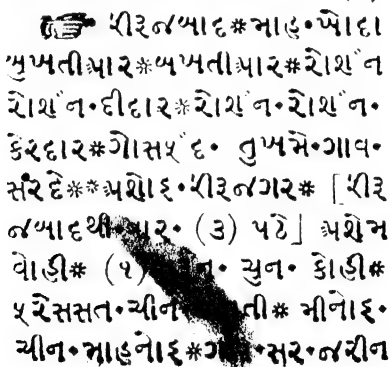 ☛ પીરૂજબાદ*માહ•ખોદા
બુખતીઆર*બખતીઆર*રોશન
રોશન•દીદાર*રોશન•રોશન
કેરદાર*ગોસપંદ• તુખમે•ગાવ•
સરદે**પશોઇ•પીરૂજગર* [પીરૂ
જબાદથી (૩) પઢે] પશેમ
વાહી* (૧) ચુન• કોહી*
પરેસસત•ચીન મીનોઇ•
ચીન•માહનોઇ* •સર•જરીન